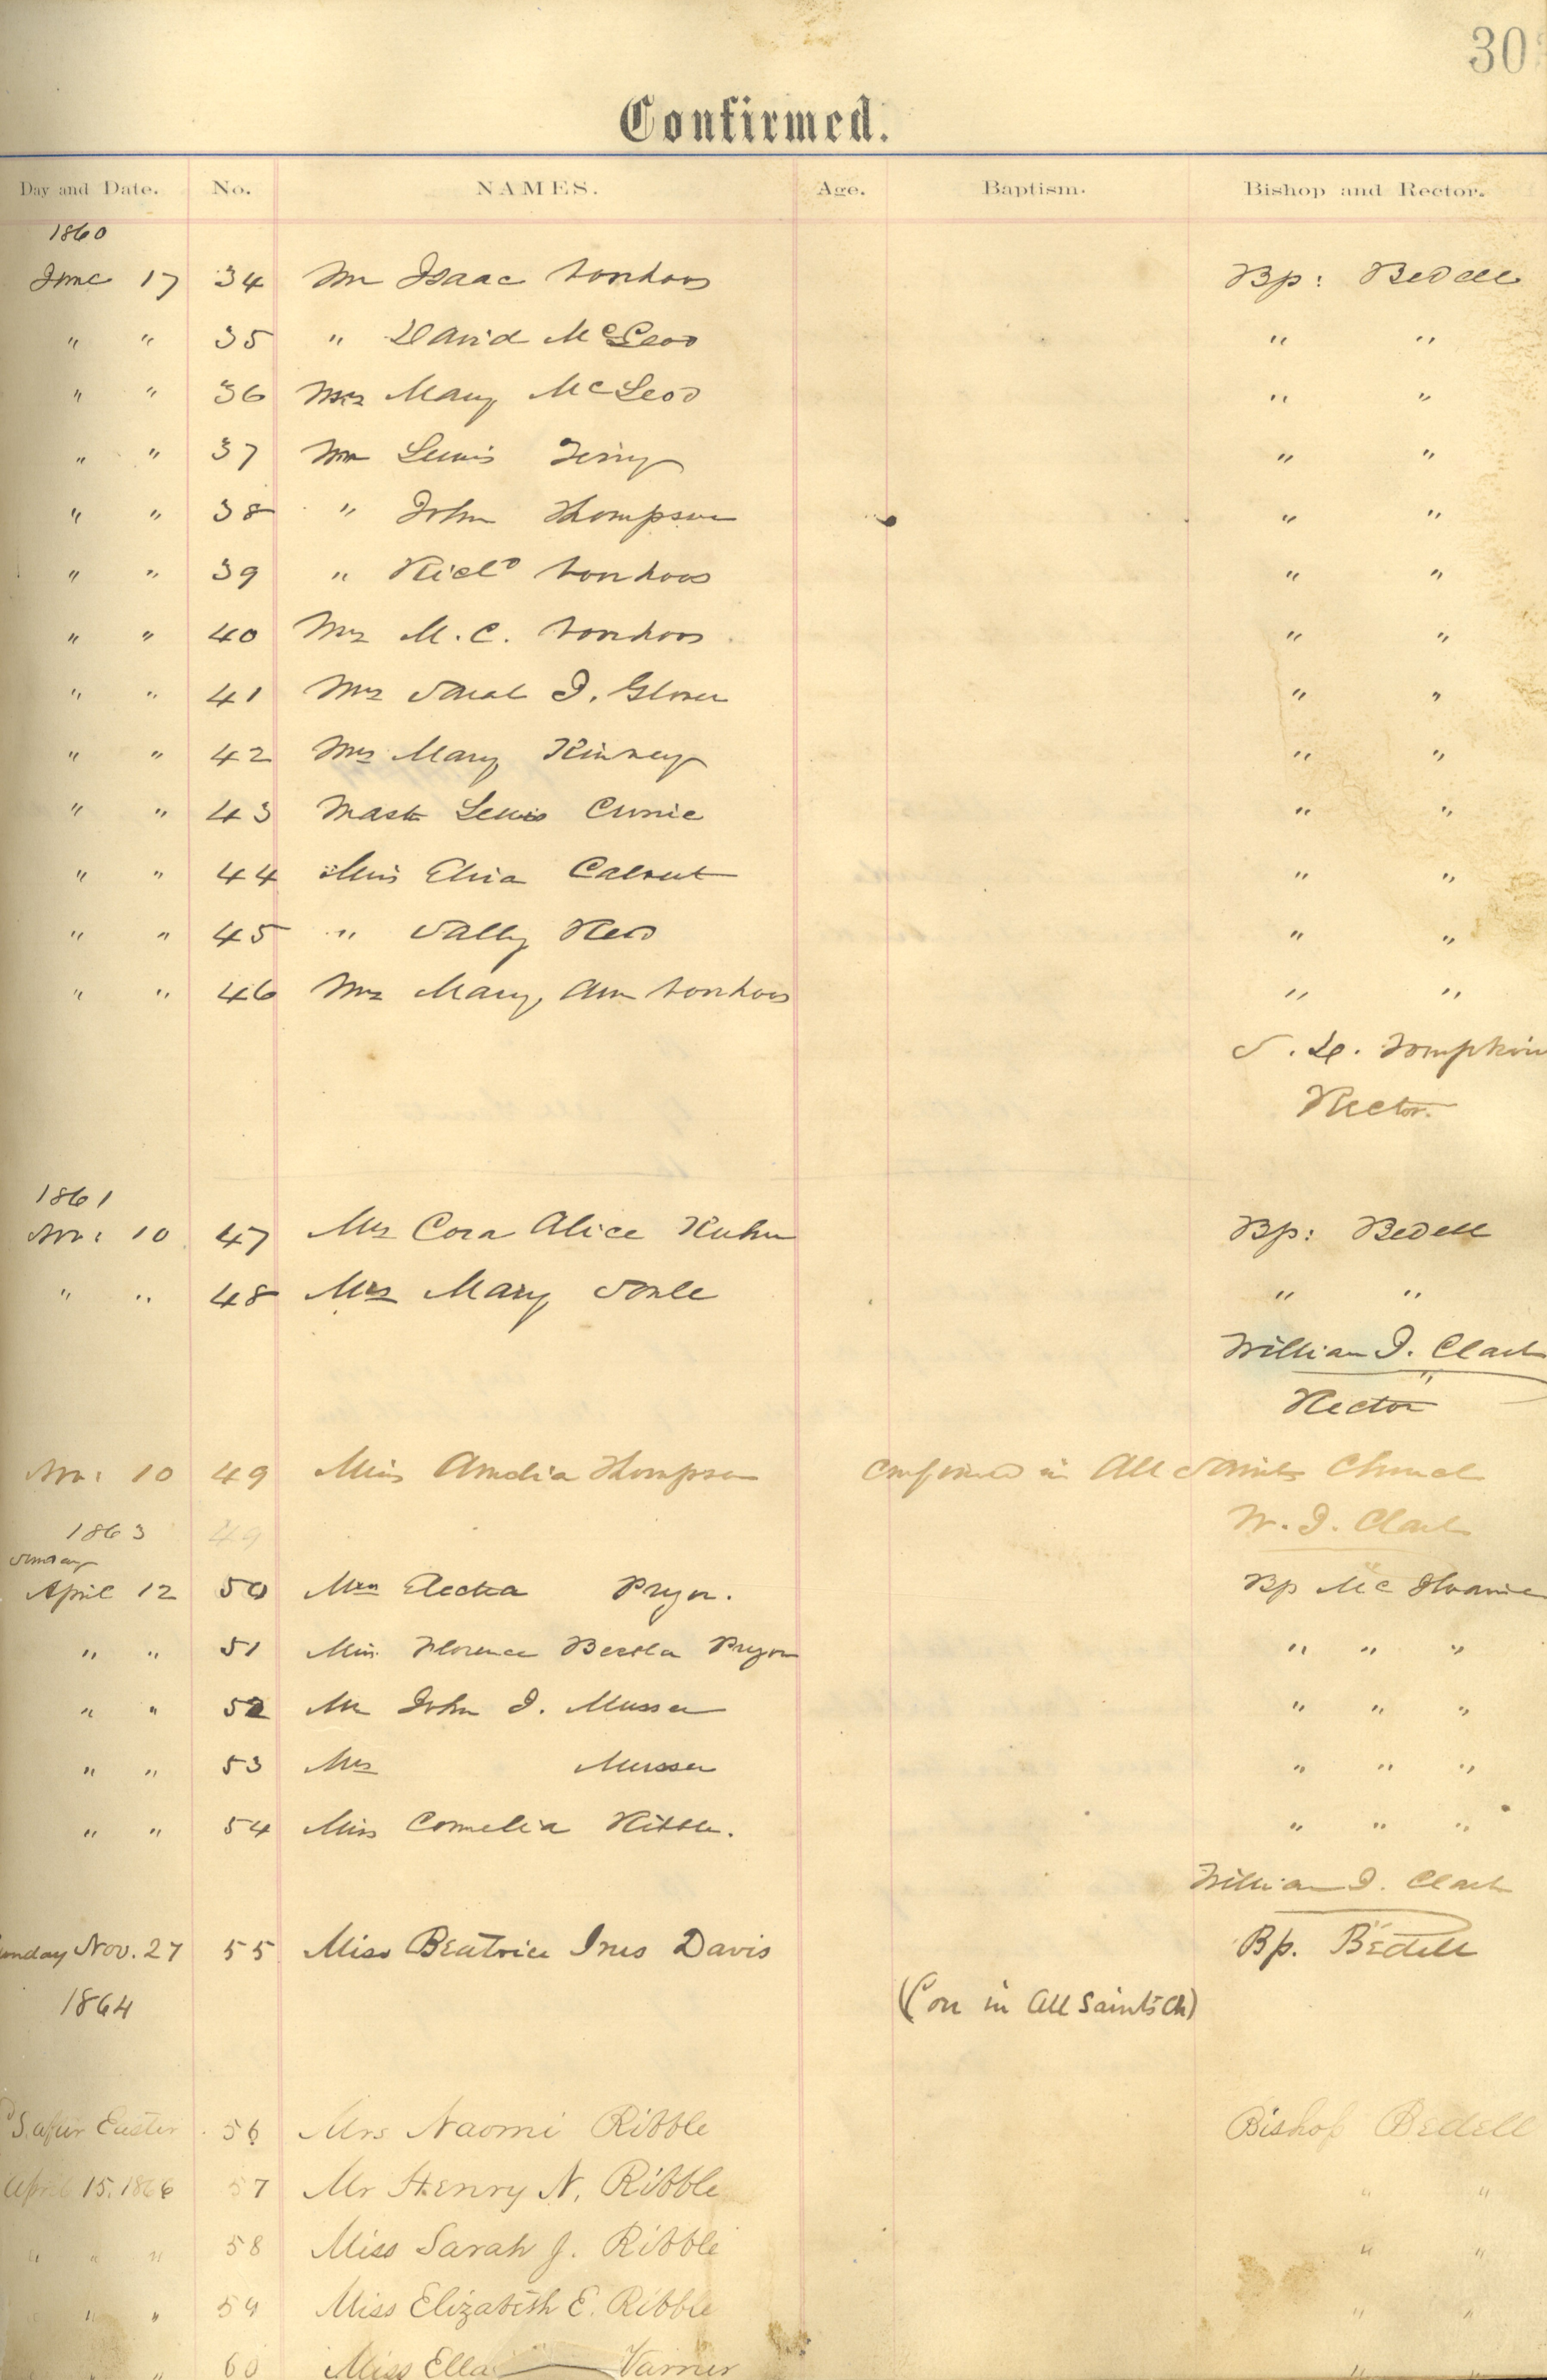 30
Confirmed.
Day and Date. No. NAMES. Age. Baptism. Bishop and Rector.
1860
June 17 34 Mr Isaac Vonhoos Bp: Bedell
" " 35 " David McLeod " "
" " 36 Mrs Mary McLeod " "
" " 37 Mr Lewis " "
" " 38 " John Thompson " "
" " 39 " Richd Vonhoos " "
" " 40 Mrs M. C. Vonhoos " "
" " 41 Mrs Sarah J. Glover " "
" " 42 Mrs Mary Kinney " "
" " 43 Mast Lewis " "
" " 44 Miss Calvert " "
" " 45 " Sally Reed " "
" " 46 Mrs Mary Ann Vonhoos " "
Rector.
1861
Nov: 10 47 Mrs Cora Alice Kuhn Bp: Bedell
" " 48 Mrs Mary Soule " "
William J. Clark
Rector
Nov: 10 49 Miss Amelia Thompson Confirmed in All Saints Church
1863 49 W. J. Clark
Sunday
April 12 50 Mrs Electa Pryor. Bp McIlvaine
" " 51 Miss Florence Pryor " " "
" " 52 Mr John J. Musser " " "
" " 53 Mrs Musser " " "
" " 54 Miss Cornelia Ribble. " " "
William J. Clark
Nov. 27 55 Miss Beatrice Ines Davis Bp. Bedell
1864 (Con in All Saints Ch)
S. after Easter 56 Mrs Naomi Ribble Bishop Bedell
April 15. 1866 57 Mr Henry N. Ribble " "
" " " 58 Miss Sarah J. Ribble " "
" " 59 Miss Elizabeth E. Ribble " "
" " 60 Miss Ella Varner " "